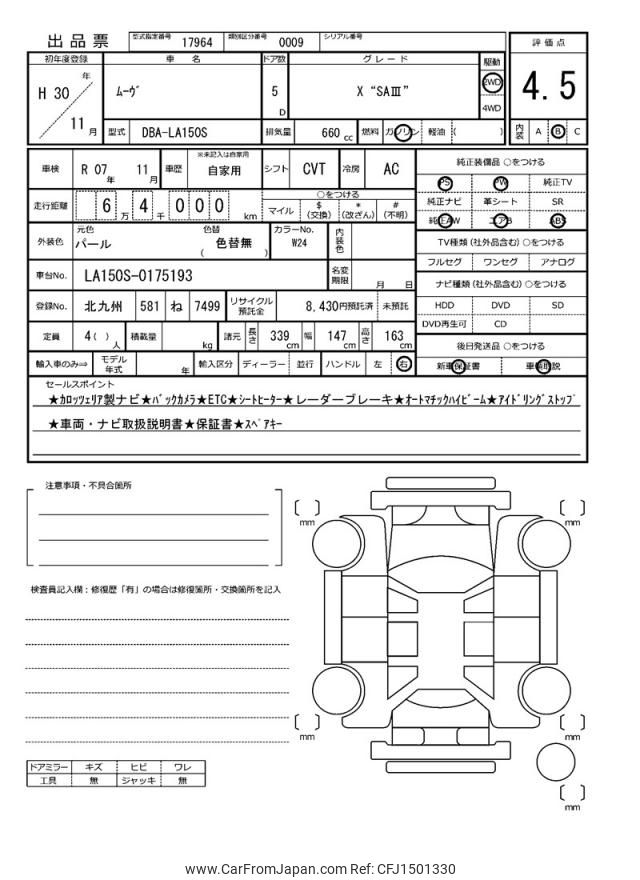 出品票
型式指定番号 17964 類別区分番号 0009 シリアル番号
評価点
4.5
内装 A B C
初年度登録 車名 ドア数 グレード 駆動
H 30 年 11 月
ムーヴ 5 D X “SAⅢ” 2WD 4WD
型式 DBA-LA150S 排気量 660 cc 燃料 ガソリン 軽油 ( )
車検 R 07 年 11 月 車歴 ※未記入は自家用 自家用 シフト CVT 冷房 AC
走行距離 6 万 4 千 0 0 0 km
○をつける
マイル $(交換) *(改ざん) #(不明)
外装色 元色 パール 色替 ( 色替無 ) カラーNo. W24 内装色
車台No. LA150S-0175193 名変期限 月 日
登録No. 北九州 581 ね 7499 リサイクル預託金 8,430円預託済 未預託
定員 4( ) 人 積載量 kg 諸元 長さ 339 cm 幅 147 cm 高さ 163 cm
輸入車のみ⇒ モデル年式 年 輸入区分 ディーラー 並行 ハンドル 左 右
純正装備品 ○をつける
PS PW 純正TV
純正ナビ 革シート SR
純正AW エアB ABS
TV種類(社外品含む)○をつける
フルセグ ワンセグ アナログ
ナビ種類(社外品含む)○をつける
HDD DVD SD
DVD再生可 CD
後日発送品 ○をつける
新車保証書 車輌取説
セールスポイント
★カロッツェリア製ナビ★バックカメラ★ETC★シートヒーター★レーダーブレーキ★オートマチックハイビーム★アイドリングストップ
★車両・ナビ取扱説明書★保証書★スペアキー
注意事項・不具合箇所
検査員記入欄:修復歴「有」の場合は修復箇所・交換箇所を記入
ドアミラー キズ ヒビ ワレ
工具 無 ジャッキ 無
mm
mm
mm
mm
mm
www.CarFromJapan.com Ref: CFJ1501330